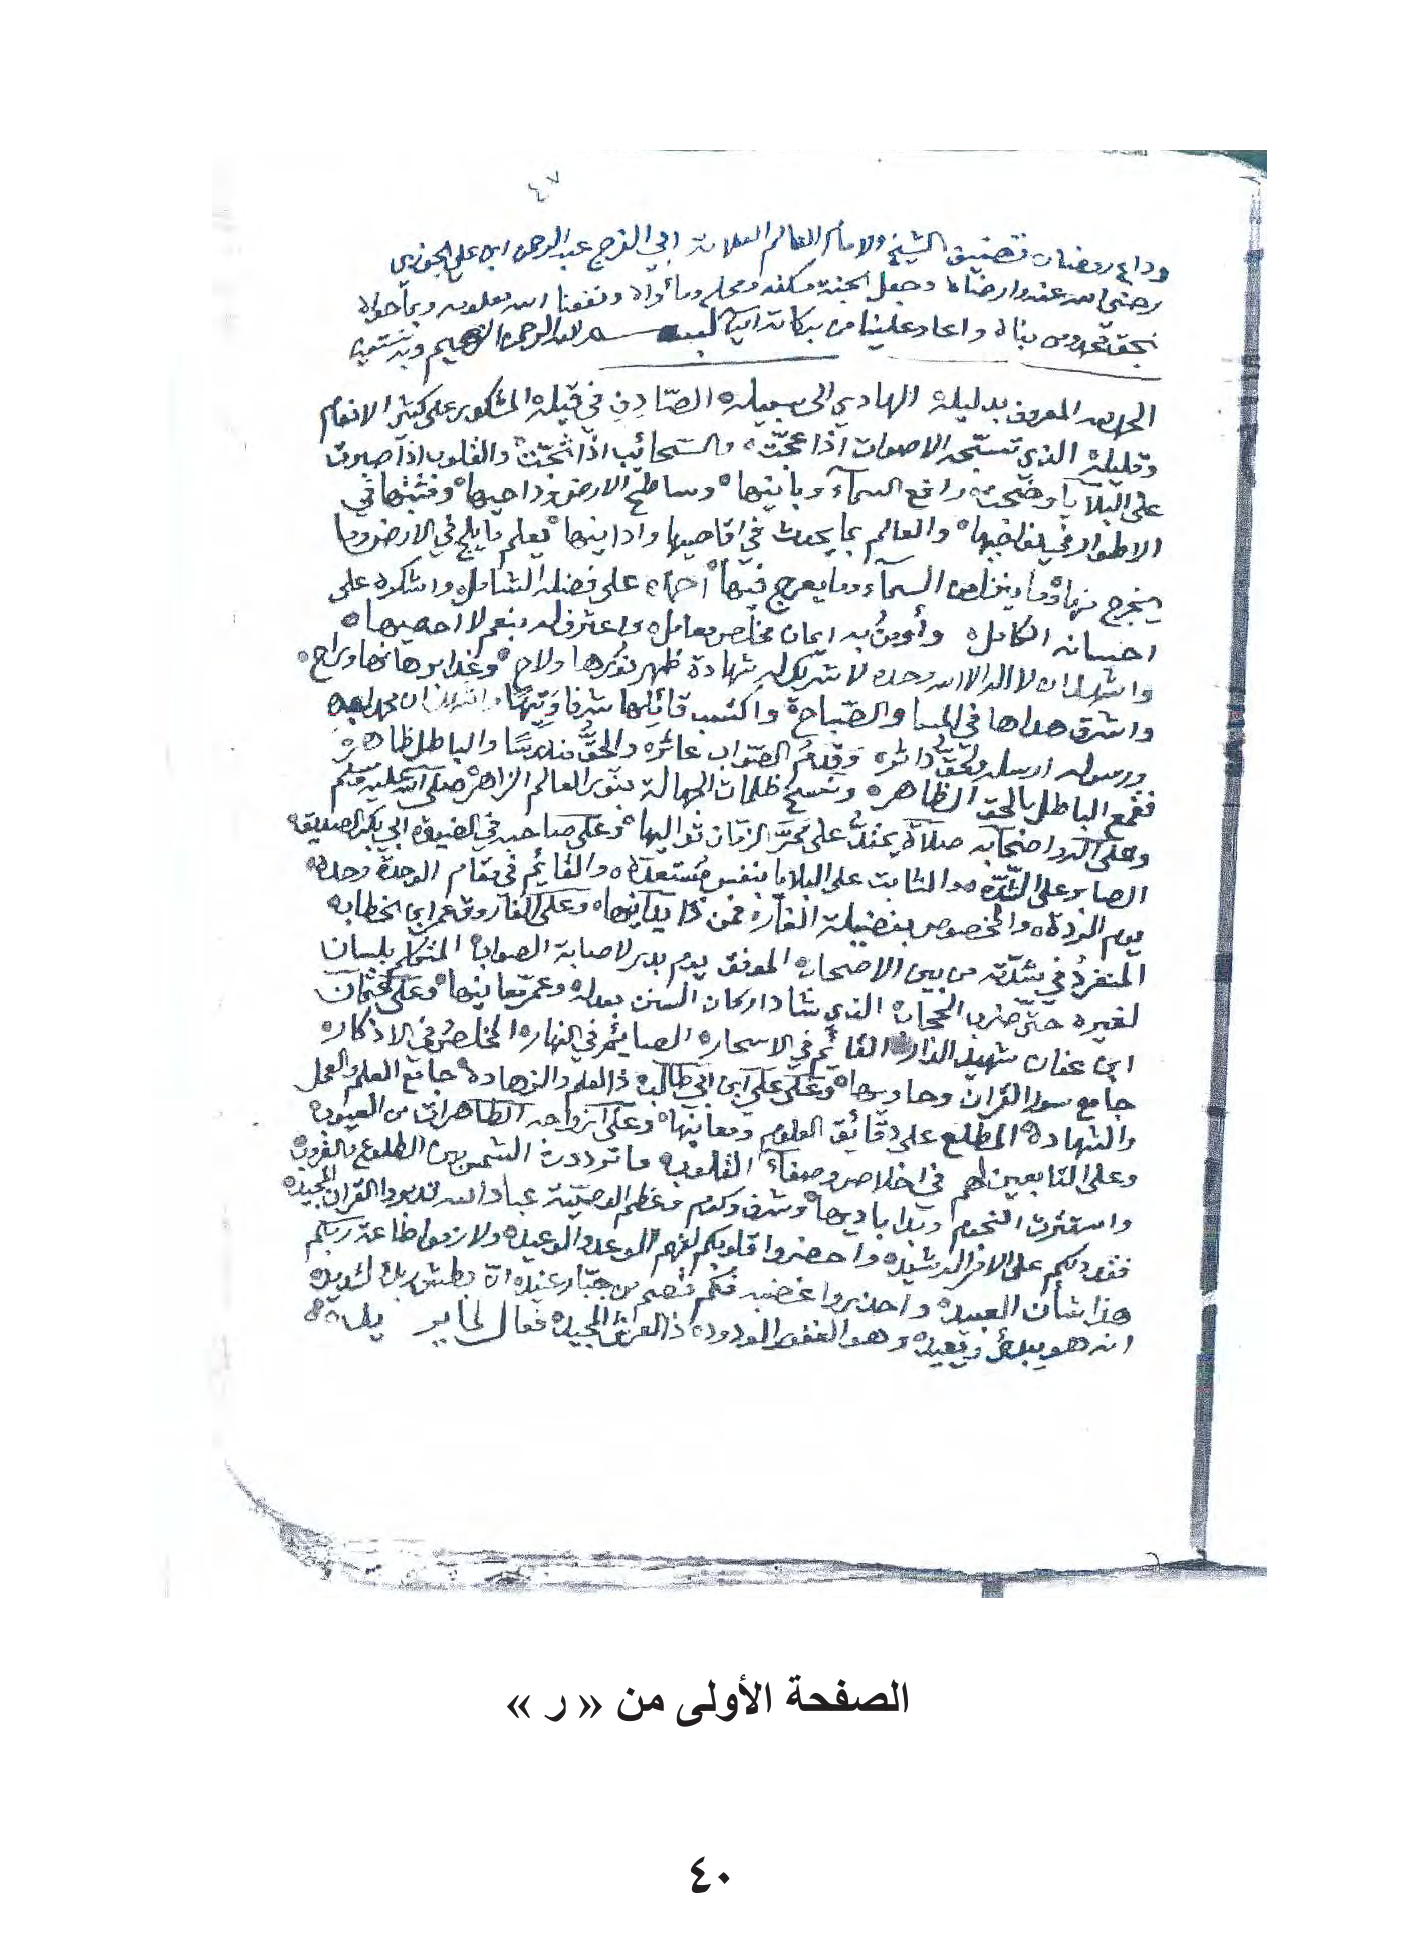 ٤٧
وداع رمضان تصنيف الشيخ والامام العالم العلامة ابي الفرج عبد الرحمن ابن علي الجوزي
رضي الله عنه وارضاه وجعل الجنة مسكنه ومحله ومأواه ونفعنا الله بعلومه وبما حواه
بحق محمد ومن بناه واعاد علينا من بركاته آمين بسم الله الرحمن الرحيم وبه نستعين
الحمد لله المعروف بدليله الهادي الى سبيله الصادق في قيله المشكور على كثير الانعام
وقليله الذي تسبحه الاصوات اذا عجت والسحائب اذا ثجت والقلوب اذا صبرت
على البلايا وضجت رافع السمآء وبانيها وساطح الارض وداحيها ومثبتها في
الاطواد في نواحيها والعالم بما يحدث في اقاصيها وادانيها يعلم ما يلج في الارض وما
يخرج منها وما ينزل من السمآء وما يعرج فيها احمده على فضله الشامل واشكره على
احسانه الكامل وأومن به ايمان مخلص معامل واعترف له بنعم لا احصيها
واشهد ان لا اله الا الله وحده لا شريك له شهادة ظهر نورها ولاح وغدا برهانها وراح
واشرق هداها في المسا والصباح واكتسب قائلها شرفا وتيها واشهد ان محمدا عبده
ورسوله ارسله والحق دائره وقدم الصواب عاثره والحق مندرسا والباطل ظاهره
فقمع الباطل بالحق الظاهره ونسخ ظلمات الجهالة بنور العالم الزاهر صلى الله عليه وسلم
وعلى اله واصحابه صلاة يمتد على ممر الزمان تواليها وعلى صاحبه في الضيقة ابي بكر الصديق
الصابر على الشدة والثابت على البلايا بنفس مستعدة والقائم في مقام الوحدة وحده
يوم الردة والمخصوص بفضيلة الغار فمن ذا يدانيها وعلى الفاروق عمر ابن الخطاب
المنفرد في شدته من بين الاصحاب الموفق يوم بدر لاصابة الصواب المتكلم بلسان
لغيره حتى ضرب الحجاب الذي شاد اركان السنن بعدله وعمر معانيها وعلى عثمان
ابن عفان شهيد الدار القائم في الاسحار الصائم في النهار المخلص في الاذكار
جامع سور القرآن وحاويها وعلى علي ابن ابي طالب ذا العلم والزهادة جامع العلم والعمل
والشهادة المطلع على دقائق العلوم ومعانيها وعلى ازواجه الطاهرات من العيوب
وعلى التابعين لهم في اخلاص وصفاء القلوب ما ترددت الشمس بين الطلوع والغروب
واستترت النجوم وبدا باديها وشرف وكرم وعظم الوصية عباد الله تدبروا القرآن المجيد
فقد دلكم على الامر الرشيد واحضروا قلوبكم لفهم الوعد والوعيد ولازموا طاعة ربكم
هذا شأن العبيد واحذروا غضبه فكم قصم من جبار عنيد ان بطش ربك لشديد
انه هو يبدئ ويعيد وهو الغفور الودود ذا العرش المجيد فعال لما يريد
الصفحة الأولى من « ر »
٤٠